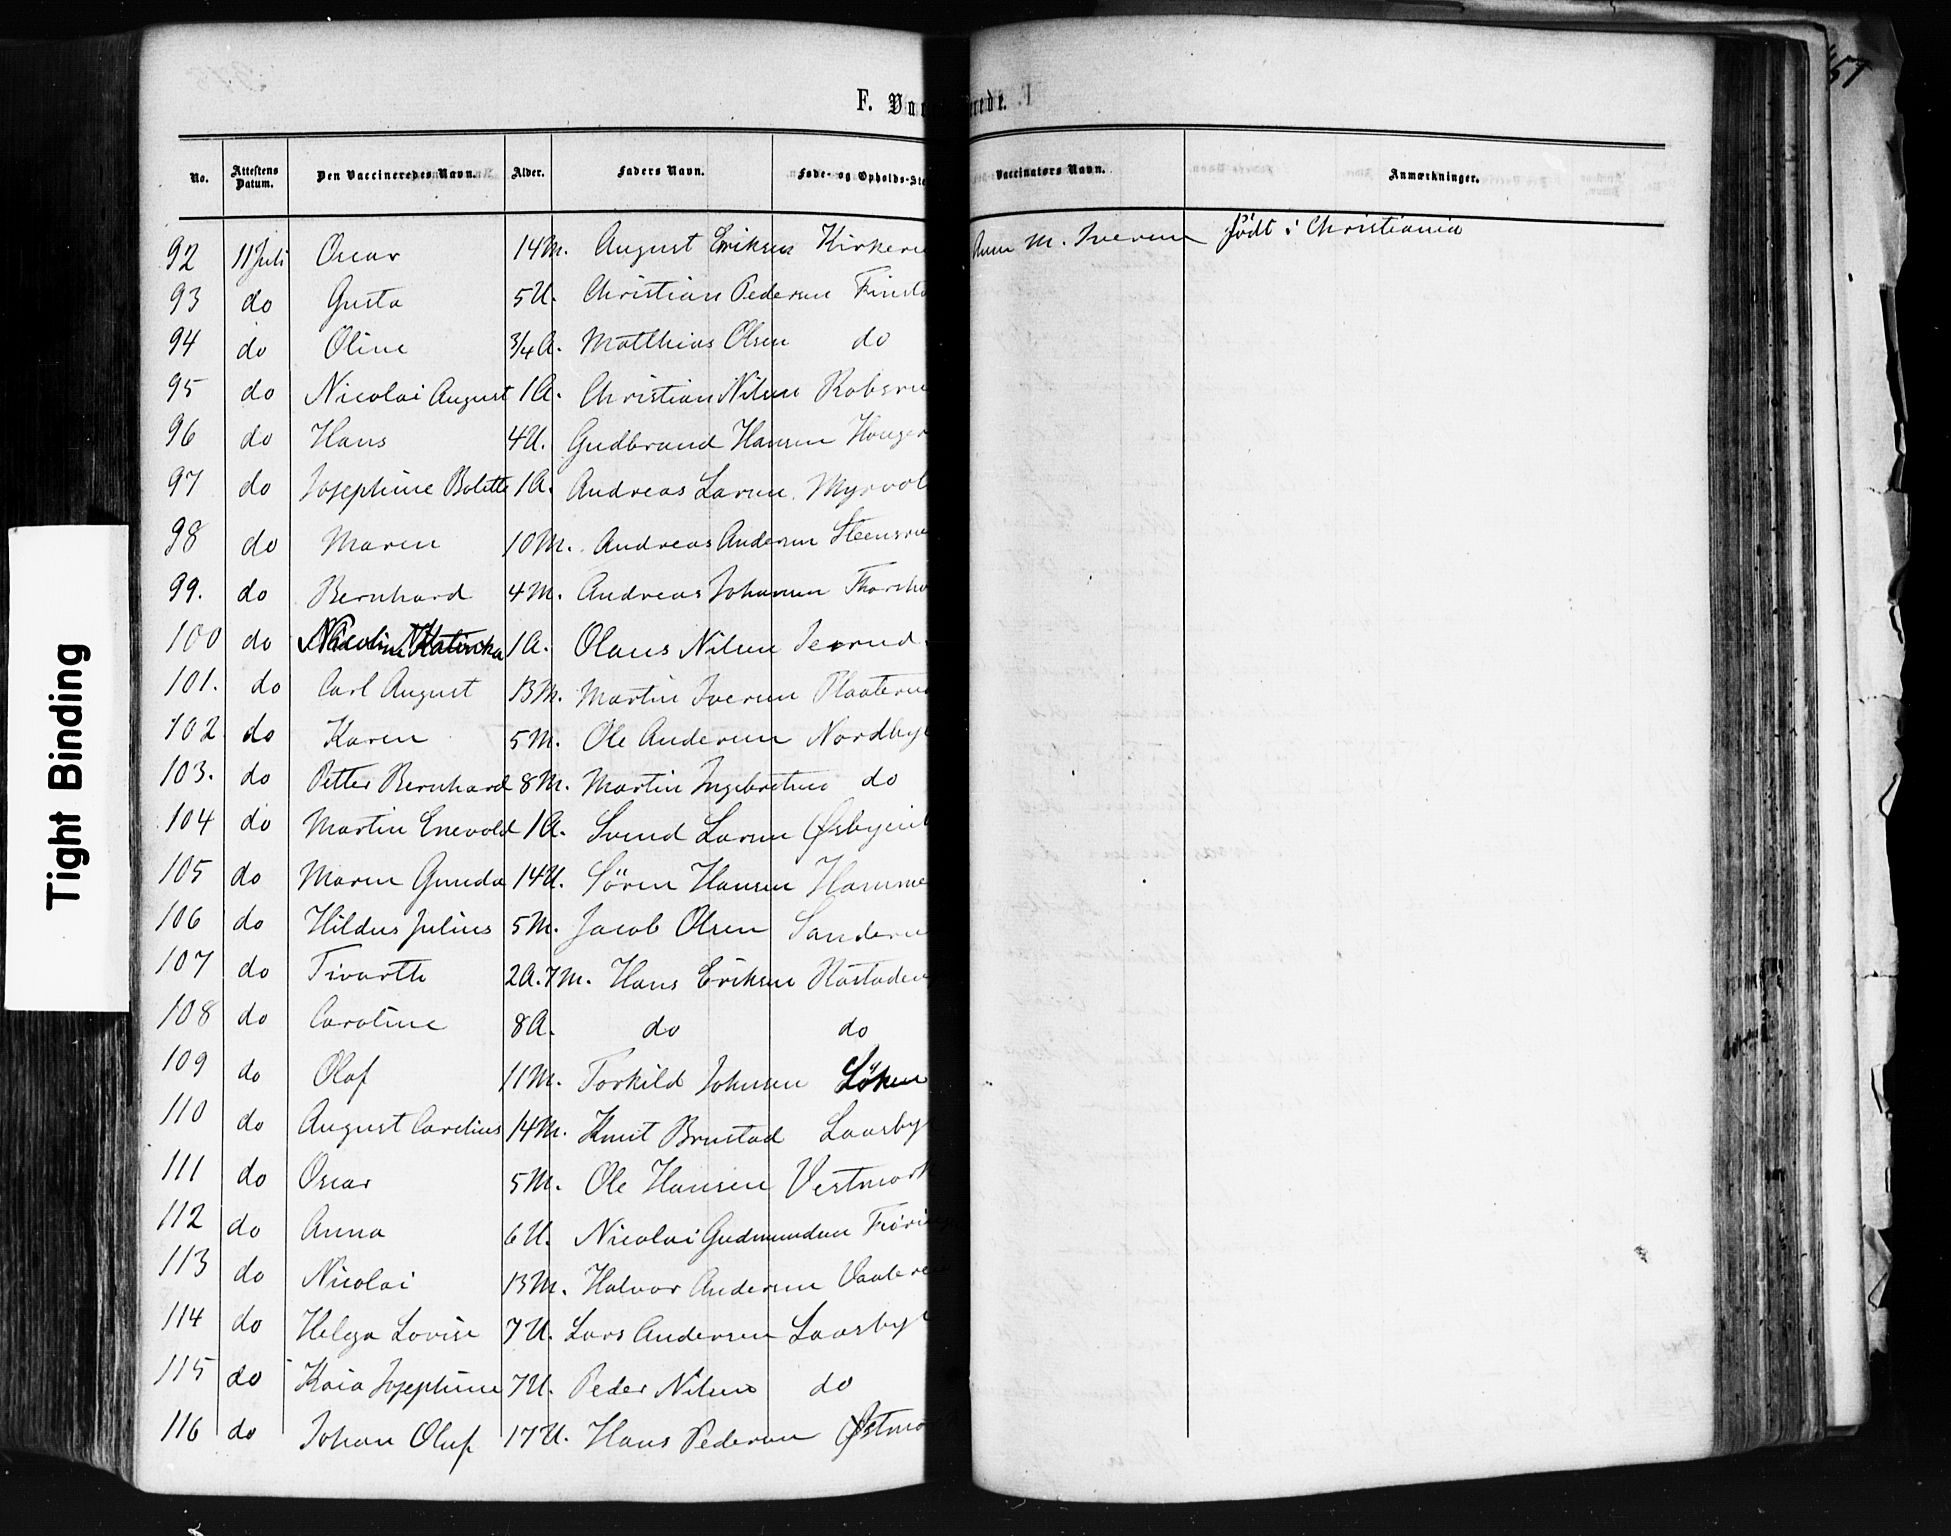 57
F. Vac
erede.
No. Attestens Datum. Den Vaccineredes Navn. Alder. Faders Navn. Føde- og Opholds-Ste Vaccinators Navn. Anmærkninger.
92 11 Juli Oscar 14 M. August Eriksen Kirkeru M. Iversen født i Christiania
93 do Gusta 5 U. Christian Pedersen Finsta
94 do Oline 3/4 A. Matthias Olsen do
95 do Nicolai August 1 A. Christian Nilsen Robsru
96 do Hans 4 U. Gudbrand Hansen Houger
97 do Josephine Bolette 1 A. Andreas Larsen Myrvol
98 do Maren 10 M. Andreas Andersen Steensru
99. do Bernhard 4 M. Andreas Johansen Thorsho
100 do Nicoline Katinka 1 A. Olaus Nilsen
101. do Carl August 13 M. Martin Iversen Plaateru
102 do Karen 5 M. Ole Andersen Nordbye
103. do Petter Bernhard 8 M. Martin Ingebretsen do
104 do Martin Enevold 1 A. Svend Larsen Østbyeie
105 do Maren Gunda 14 U. Sören Hansen Hamme
106 do Hildus Julius 5 M. Jacob Olsen Sanderu
107 do Sivarth 2 A. 7 M. Hans Eriksen Röstaden
108 do Caroline 8 A. do do
109 do Olaf 11 M. Torkild Johnsen Löken
110 do August Carelius 14 M. Knut Brustad Laasby
111 do Oscar 5 M. Ole Hansen Vestmork
112 do Anna 6 U. Nicolai Gudmundsen
113 do Nicolai 13 M. Halvor Andersen Vaatere
114 do Helga Lovise 7 U. Lars Andersen Laasbye
115 do Kaia Josephine 7 U. Peder Nilsen do
116 do Johan Oluf 17 U. Hans Pedersen Østmo
Tight Binding